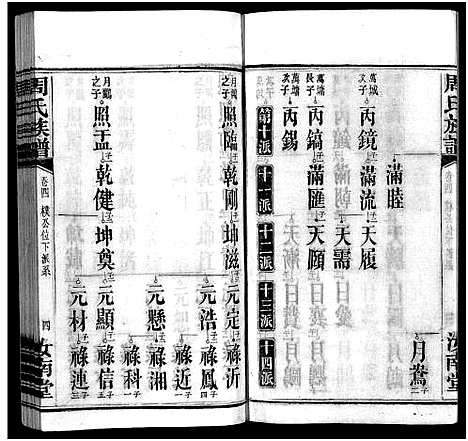 周氏族譜
月鴛
滿睦
萬城次子
丙鏡
滿流
天履
萬靖長子
丙鎬
滿匯
天需
萬靖次子
丙錫
天願
第十派
十一派
十二派
十三派
十四派
照臨
乾剛
坤滋
元定
祿沂
元浩
祿鳳
祿近
元懸
祿湘
月鶴之子
照盂
乾健
坤奠
元顯
祿科
元材
祿連
周氏族譜
卷四
樸公位下派系
四
汝南堂